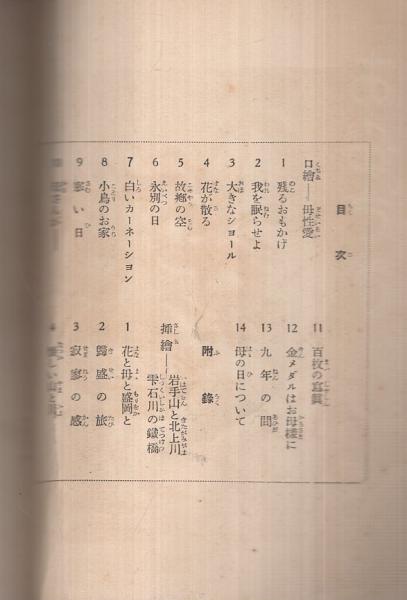 目次
口繪――母性愛
1 残るおもかげ
2 我を眠らせよ
3 大きなショール
4 花が散る
5 故郷の空
6 永別の日
7 白いカーネーション
8 小鳥のお家
9 寒い日
11 百枚の寫眞
12 金メダルはお母様に
13 九年の間
14 母の日について
附錄
挿繪――岩手山と北上川
雫石川の鐵橋
1 花と母と盛岡と
2 歸盛の旅
3 寂寥の感